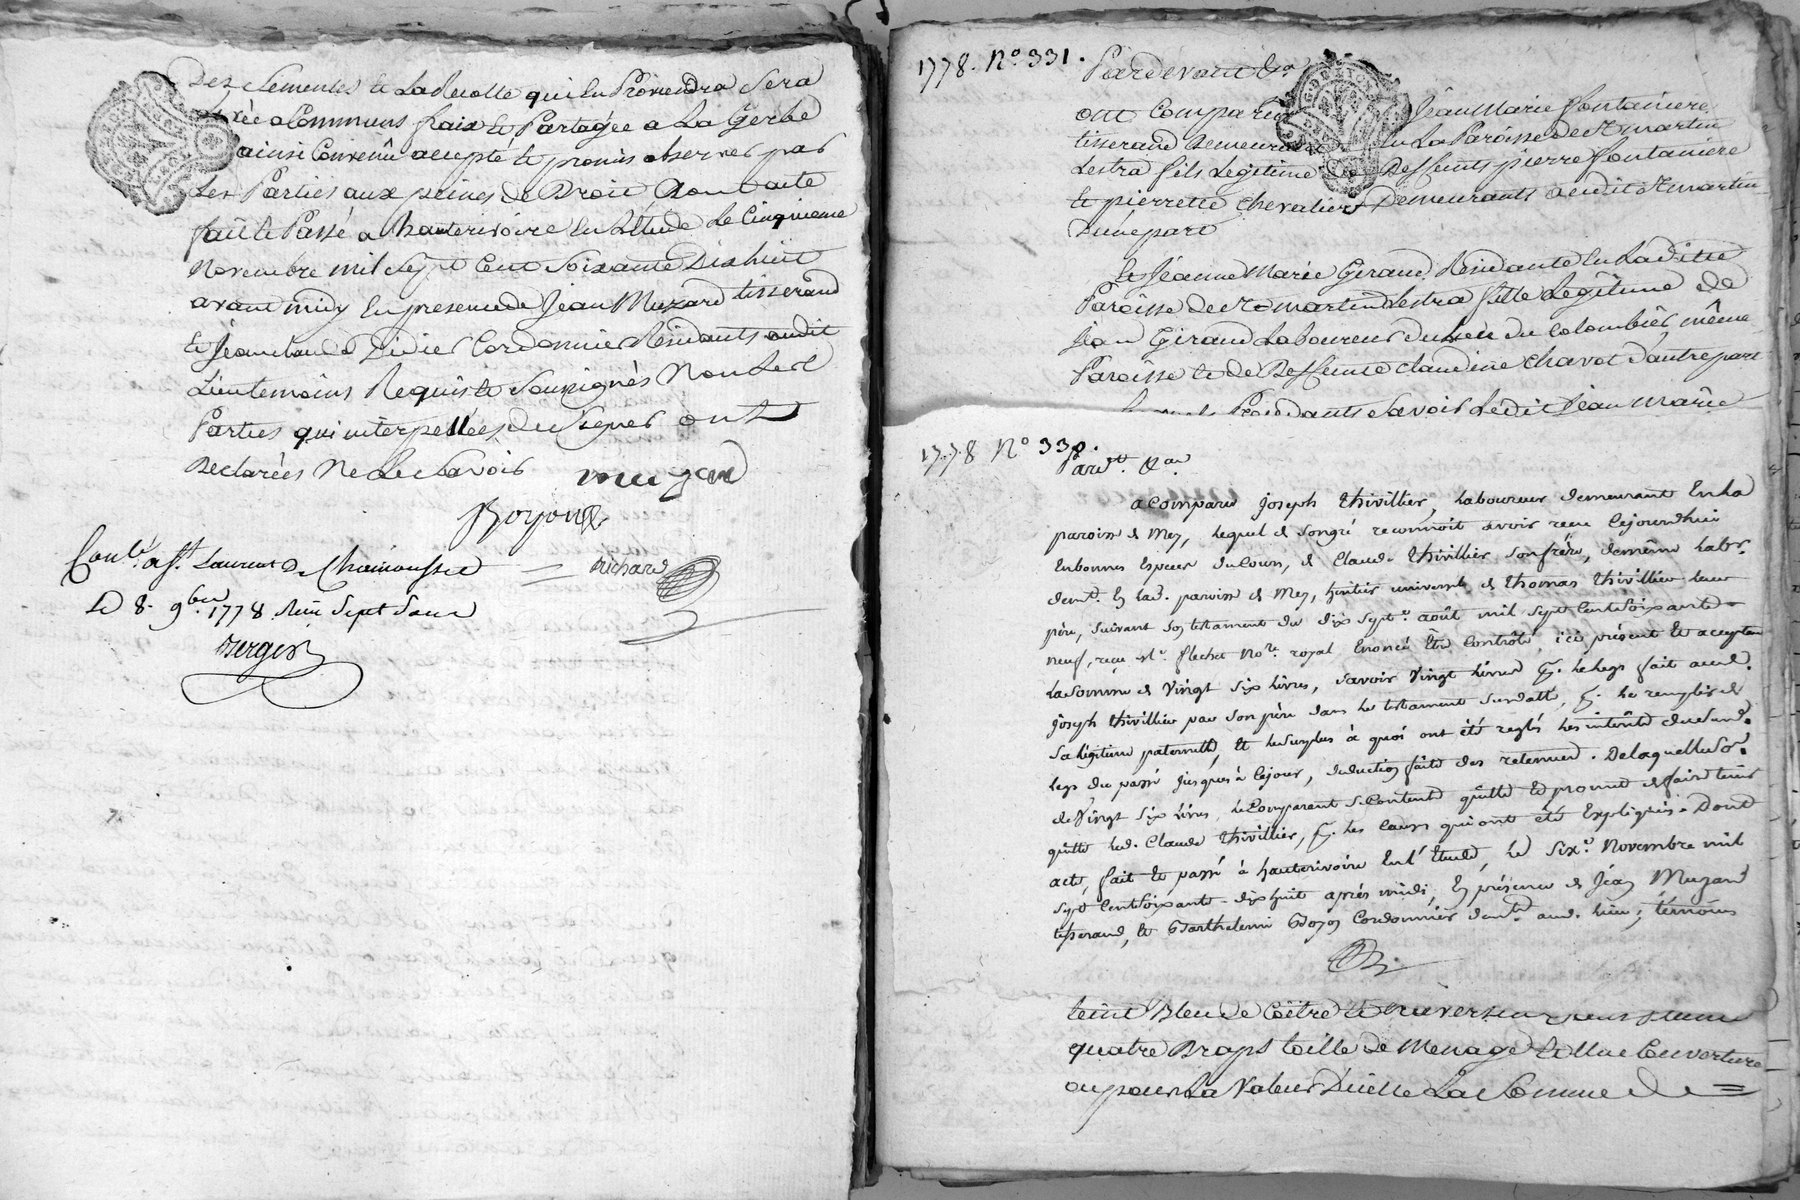 Des Semences et La Recolte qui En Proviendra Sera
à Communs fraix et Partagée a La Gerbe
ainsi Convenû accepté et promis observer par
Les Parties aux peines de Droit Dont acte
fait et Passé a hauterivoire En L'Etude Le Cinquieme
Novembre mil Sept Cent Soixante Dixhuit
avant midy En presence de Jean Muzard tisserand
et Jean Didier Cordonnier Residants audit
Lieu temoins Requis et Soussignés Non Les
Parties qui interpellées de Signer ont
Declarées Ne Le Savoir muzard
Boyoux
Conlé. a St. Laurent De Chamousset richard
Le 8. 9bre 1778 Reçu Sept Sous
Berger
1778. No. 331.
Pardevant &a
ont Comparu Jean Marie fontaniere
tisserand Demeurant En La Paroisse de St martin
Lestra fils Legitime Deffunts pierre fontaniere
et pierrette chevalier Demeurants audit St martin
D'une part
Et Jeanne Marie Giraud Residante En Laditte
Paroisse de St martin Lestra fille Legitime de
Jean Giraud Laboureur du Lieu du Colombier, même
Paroisse et de Deffunte claudine Chavot D'autre part
Procedants Savoir Ledit Jean Marie
1778 No 330.
Pardt. &a.
a Comparu Joseph thivillier, Laboureur demeurant En La
paroisse de Mey, Lequel de Son gré reconnoit avoir reçu Cejourd'hui
En bonnes Especes du Cours, de Claude thivillier Son frère, de même Labr.
demt. En lad. paroisse de Mey, héritier universel de thomas thivillier Leur
père, Suivant Son testament du dix Sept. août mil Sept Cent Soixante
neuf, reçu Me. flechet Nore. royal Enoncé Etre Contrôlé ici présent et acceptant
La Somme de Vingt Six Livres, Savoir Vingt Livres p. le Legs fait aud.
Joseph thivillier par Son père dans le testament Surdatté, p. le remplir de
Sa légitime paternelle, et le Surplus à quoi ont été reglés les intérêts dud. Susd.
legs du passé jusques à Cejour, deduction faite des retenues. De laquelle So.
de Vingt Six Livres, le Comparant Se Contente quitte et promet de faire tenir
quitte led. Claude thivillier, p. les Causes qui ont été Expliquées. Dont
acte, fait et passé à hauterivoire En l'Etude, le Six. Novembre mil
Sept Cent Soixante-dix huit après midi, En présence de Jean Muzard
tisserand, et Barthelemi Cordonnier demt. aud. lieu, témoins
teint Bleu de
quatre Draps toille De Menage et Une Couverture
ou pour La Valeur D'icelle La Somme de =